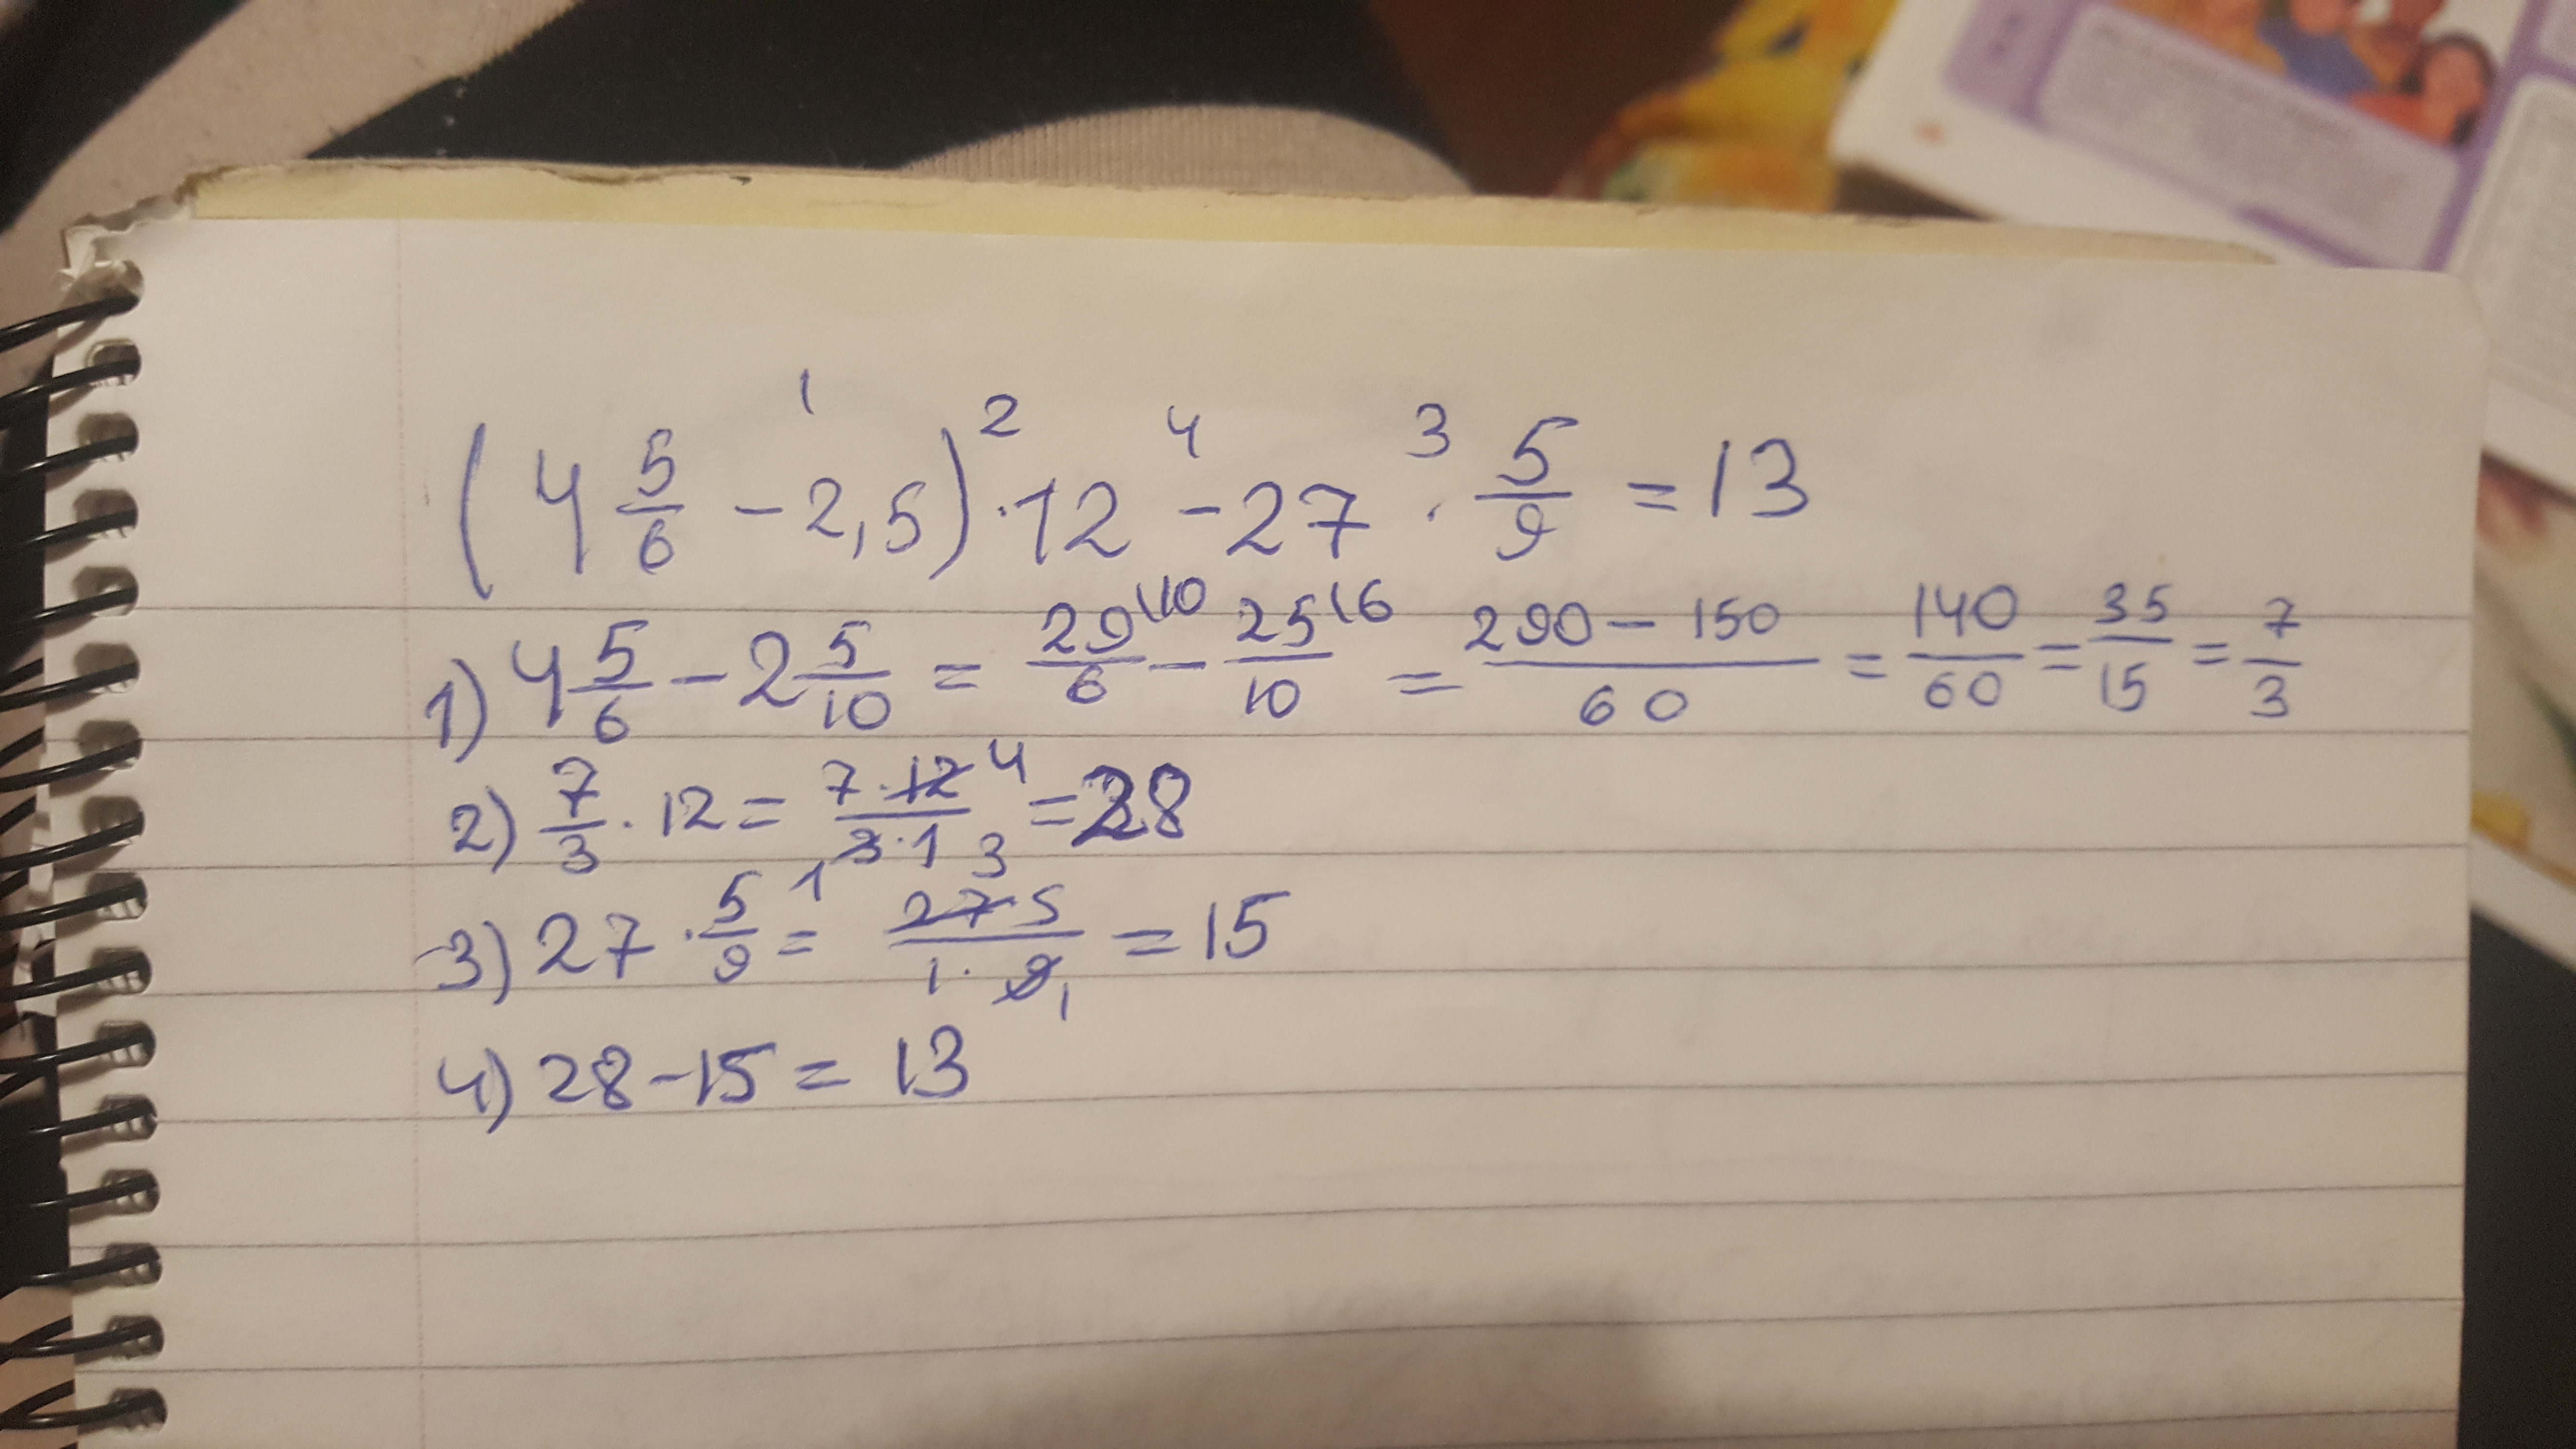 (4 5/6 - 2,5) · 12 - 27 · 5/9 = 13
1 2 4 3
1) 4 5/6 - 2 5/10 = 29\10/6 - 25\6/10 = 290 - 150/60 = 140/60 = 35/15 = 7/3
2) 7/3 · 12 = 7 · 12 4/3 · 1 1 = 28
3) 27 · 5/9 = 27 3 · 5/1 · 9 1 = 15
4) 28 - 15 = 13